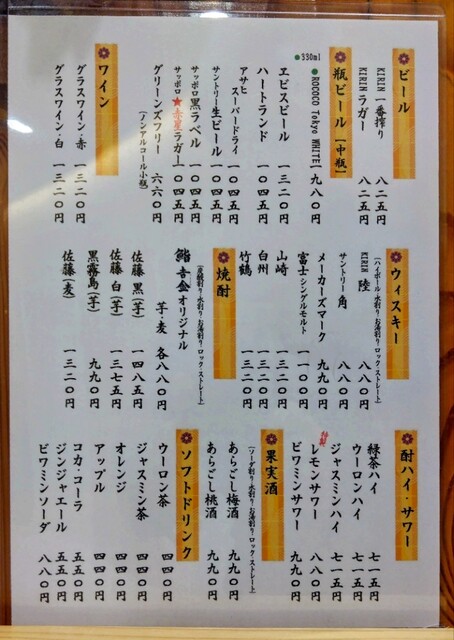 ビール
KIRIN 一番搾り 八二五円
KIRIN ラガー 八二五円
瓶ビール [中瓶]
●ROCOCO Tokyo WHITE 一九八〇円
●330ml
ヱビスビール 一三二〇円
ハートランド 一〇四五円
アサヒ スーパードライ 一〇四五円
サントリー 生ビール 一〇四五円
サッポロ 黒ラベル 一〇四五円
サッポロ ★赤星ラガー 一〇四五円
グリーンズフリー 六六〇円
(ノンアルコール小瓶)
ワイン
グラスワイン・赤 一三二〇円
グラスワイン・白 一三二〇円
ウィスキー
[ハイボール・水割り・お湯割り・ロック・ストレート]
KIRIN 陸 八八〇円
サントリー 角 八八〇円
メーカーズマーク 九九〇円
富士 シングルモルト 一一〇〇円
山崎 一三二〇円
白州 一三二〇円
竹鶴 一三二〇円
焼酎
[炭酸割り・水割り・お湯割り・ロック・ストレート]
鮨 音金 オリジナル
芋・麦 各八八〇円
佐藤 黒(芋) 一四八五円
佐藤 白(芋) 一三七五円
黒霧島(芋) 九九〇円
佐藤(麦) 一三二〇円
酎ハイ・サワー
緑茶ハイ 七一五円
ウーロンハイ 七一五円
ジャスミンハイ 七一五円
特製 レモンサワー 八八〇円
ビワミンサワー 九九〇円
果実酒
[ソーダ割り・水割り・お湯割り・ロック・ストレート]
あらごし梅酒 九九〇円
あらごし桃酒 九九〇円
ソフトドリンク
ウーロン茶 四四〇円
ジャスミン茶 四四〇円
オレンジ 四四〇円
アップル 四四〇円
コカ・コーラ 五五〇円
ジンジャエール 五五〇円
ビワミンソーダ 八八〇円